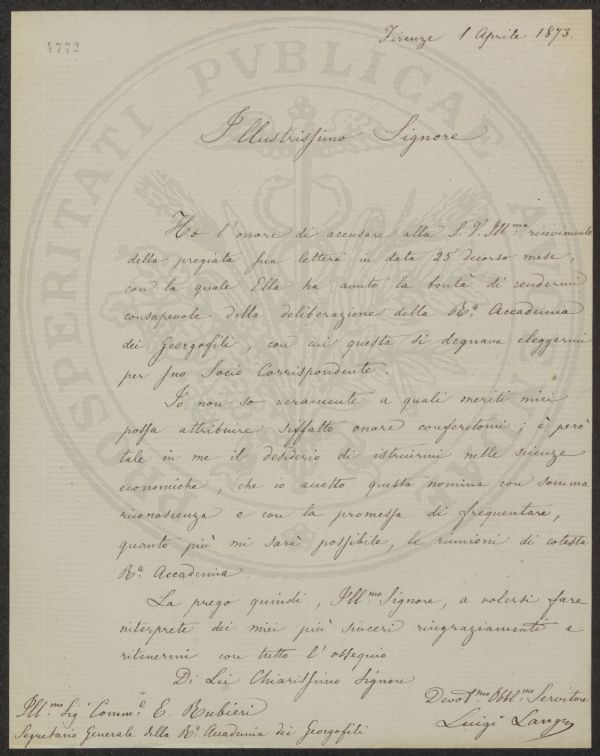 4772
Firenze 1 Aprile 1873.
PROSPERITATI PVBLICAE
Illustrissimo Signore
Ho l'onore di accusare alla S. V. Ill.ma ricevimento
della pregiata sua lettera in data 25 decorso mese,
con la quale Ella ha avuto la bontà di rendermi
consapevole della deliberazione della R.a Accademia
dei Georgofili, con cui questa si degnava eleggermi
per suo Socio Corrispondente.
Io non so veramente a quali meriti miei
possa attribuire siffatto onore conferitomi; è però
tale in me il desiderio di istruirmi nelle scienze
economiche, che io accetto questa nomina con somma
riconoscenza e con la promessa di frequentare,
quanto più mi sarà possibile, le riunioni di cotesta
R.a Accademia
La prego quindi, Ill.mo Signore, a volersi fare
interprete dei miei più sinceri ringraziamenti e
ritenermi con tutto l'ossequio
Di Lei Chiarissimo Signore
Devot.mo Obbl.mo Servitore
Luigi
Ill.mo Sig. Comm.e E. Rubieri
Segretario Generale della R.a Accademia dei Georgofili